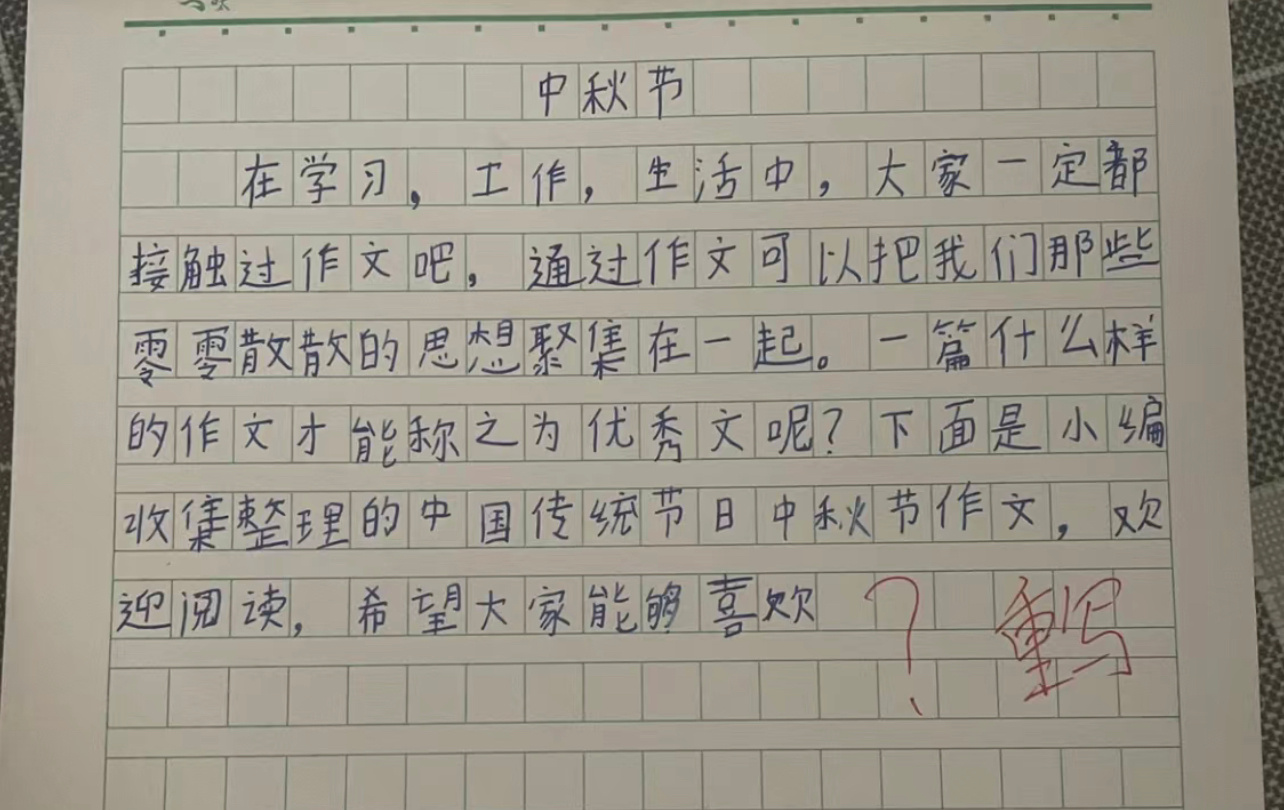 中秋节
在学习，工作，生活中，大家一定都
接触过作文吧，通过作文可以把我们那些
零零散散的思想聚集在一起。一篇什么样
的作文才能称之为优秀文呢？下面是小编
收集整理的中国传统节日中秋节作文，欢
迎阅读，希望大家能够喜欢
？ 重写